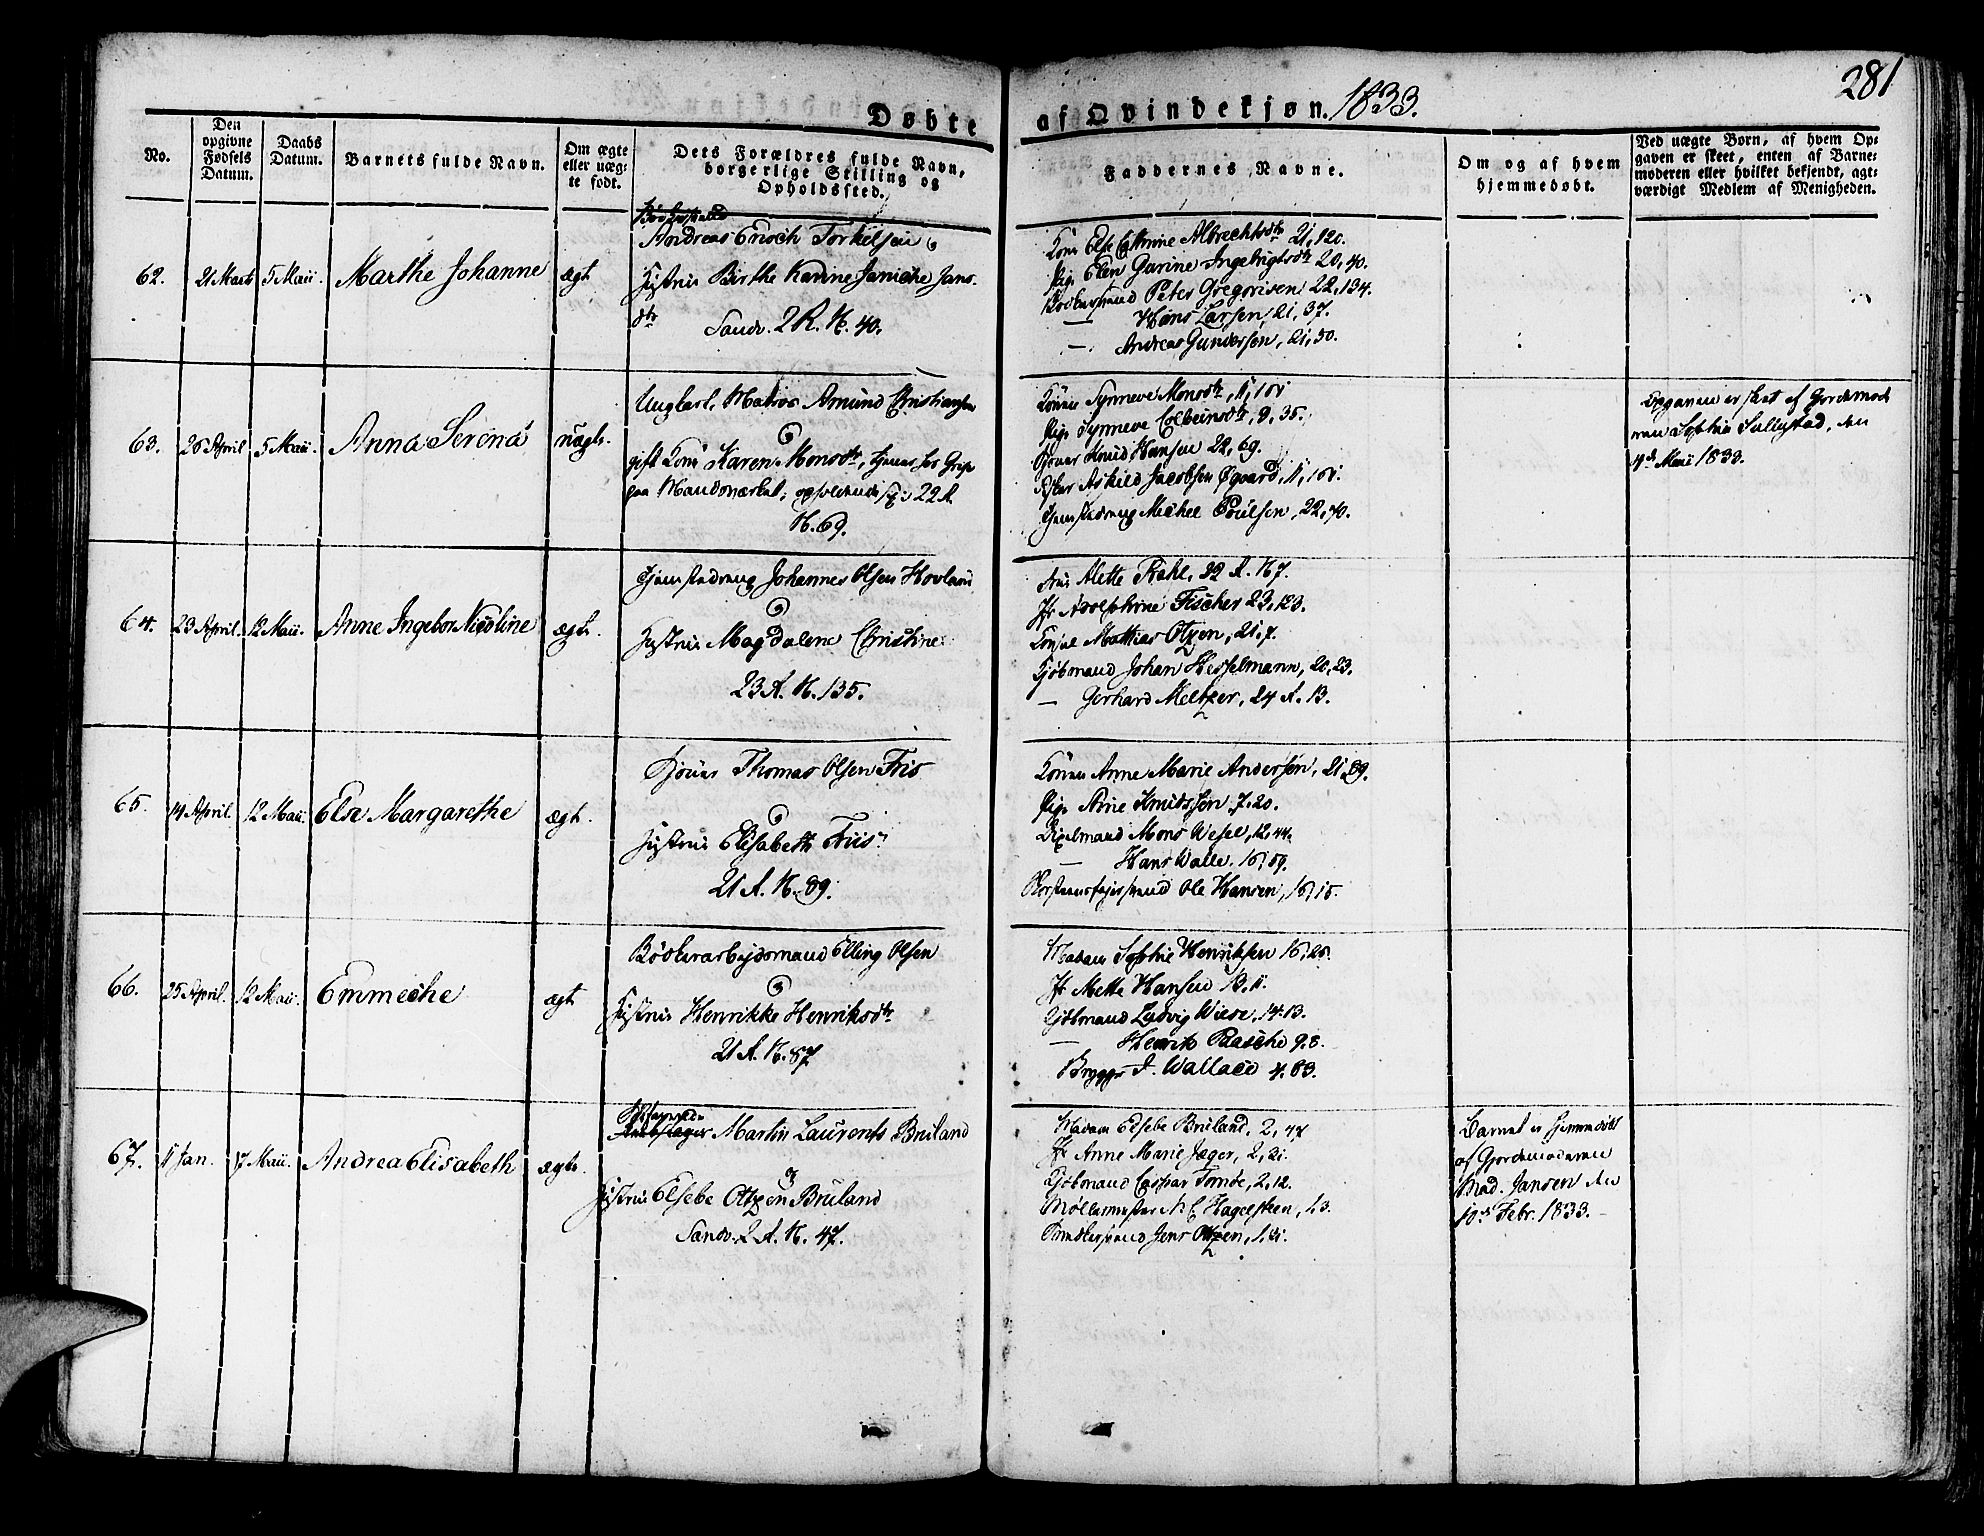 281
Døbte af Qvindekjøn. 1833.
No.
Den opgivne Fødsels Datum.
Daabs Datum.
Barnets fulde Navn.
Om ægte eller uægte født.
Dets Forældres fulde Navn, borgerlige Stilling og Opholdssted.
Faddernes Navne.
Om og af hvem hjemmedøbt.
Ved uægte Børn, af hvem Opgaven er skeet, enten af Barnemoderen eller hvilket bekjendt, agtværdigt Medlem af Menigheden.
62. 21 Marts 5 Maii. Marthe Johanne ægt
Andreas Enoch Torkelsen
Hustrue Birthe Karine Janiche Jans-
dtr
Sandv. 2 R. N. 40.
Kone Else Cathrine Albrechtsdtr 21, 120.
Pige Elen Gurine Ingebrigtsdtr 20, 40.
Bødkersvend Peter Gregorisen 22, 134.
— Hans Larsen, 21, 37.
— Andreas Gundersen, 21, 50.
63. 26 April 5 Maii. Anna Serina uægte.
Ungkarl, Matros Amund Christiansen
&
gift Kone Karen Monsdtr, tjener for Grip
paa Mandsværket, opholdende sig: 22 R.
N. 69.
Konen Synneve Monsdtr, 11, 101
Pige Synneve Colbeinsdtr, 9, 35.
Knud Hansen 22, 69.
Askild Jacobsen Øgaard, 11, 101.
Tjenestedreng Michel Poulsen, 22, 40.
Opgaven er skeet af Gjordemode-
ren Sophia Sellestad, den
4de Maii 1833.
64. 23 April. 12 Maii. Anne Ingebor Nicoline ægte.
Tjenestedreng Johannes Olsen Hovland
&
Hustrue Magdalene Christine
23 R. N. 135.
Frue Alette Krahl, 22 R. N. 7.
Jfr Adolphine Fischer 23, 123.
Konsul Mathias Otzen, 21, 7.
Kjøbmand Johan Hesselmann, 20, 23.
— Gerhard Meltzer, 24 R. 13.
65. 14 April. 12 Maii. Else Margarethe ægt.
Thomas Olsen Friis
&
Hustrue Elisabeth Friis
21 R. N. 89.
Konen Anne Marie Andersen, 21, 89.
Pige Anne Knudssøn 7, 20.
Mons Wesel, 12, 44.
— Hans Walle, 16, 59.
Ole Hansen, 16, 15.
66. 25 April. 12 Maii. Emmeche ægt
Bødkerarbejdsmand Elling Olsen
&
Hustrue Henrikke Henriksdtr
21 R. N. 87.
Madam Sophie Henriksen 16, 25.
Jfr Mette Hansen 13, 11.
Kjøbmand Ludvig Wiese, 14, 13.
— Henrik Rasche 9, 3.
Brygger J. Wallace 4, 83.
67. 11 Jan. 17 Maii. Andrea Elisabeth ægte.
Martin Laurents Bruland
&
Hustrue Elsebe Otzen Bruland
Sandv. 2 R. N. 47.
Madam Elsebe Bruland, 2, 47
Jfr Anne Marie Jæger, 2, 21.
Kjøbmand Caspar Tornøe, 2, 12.
Møllemester N. C. Hagelsteen, 1, 3.
Jens Otzen, 1, 81.
Barnet er hjemmedøbt
af Gjordemoderen
Mad. Jansen den
10de Febr. 1833.